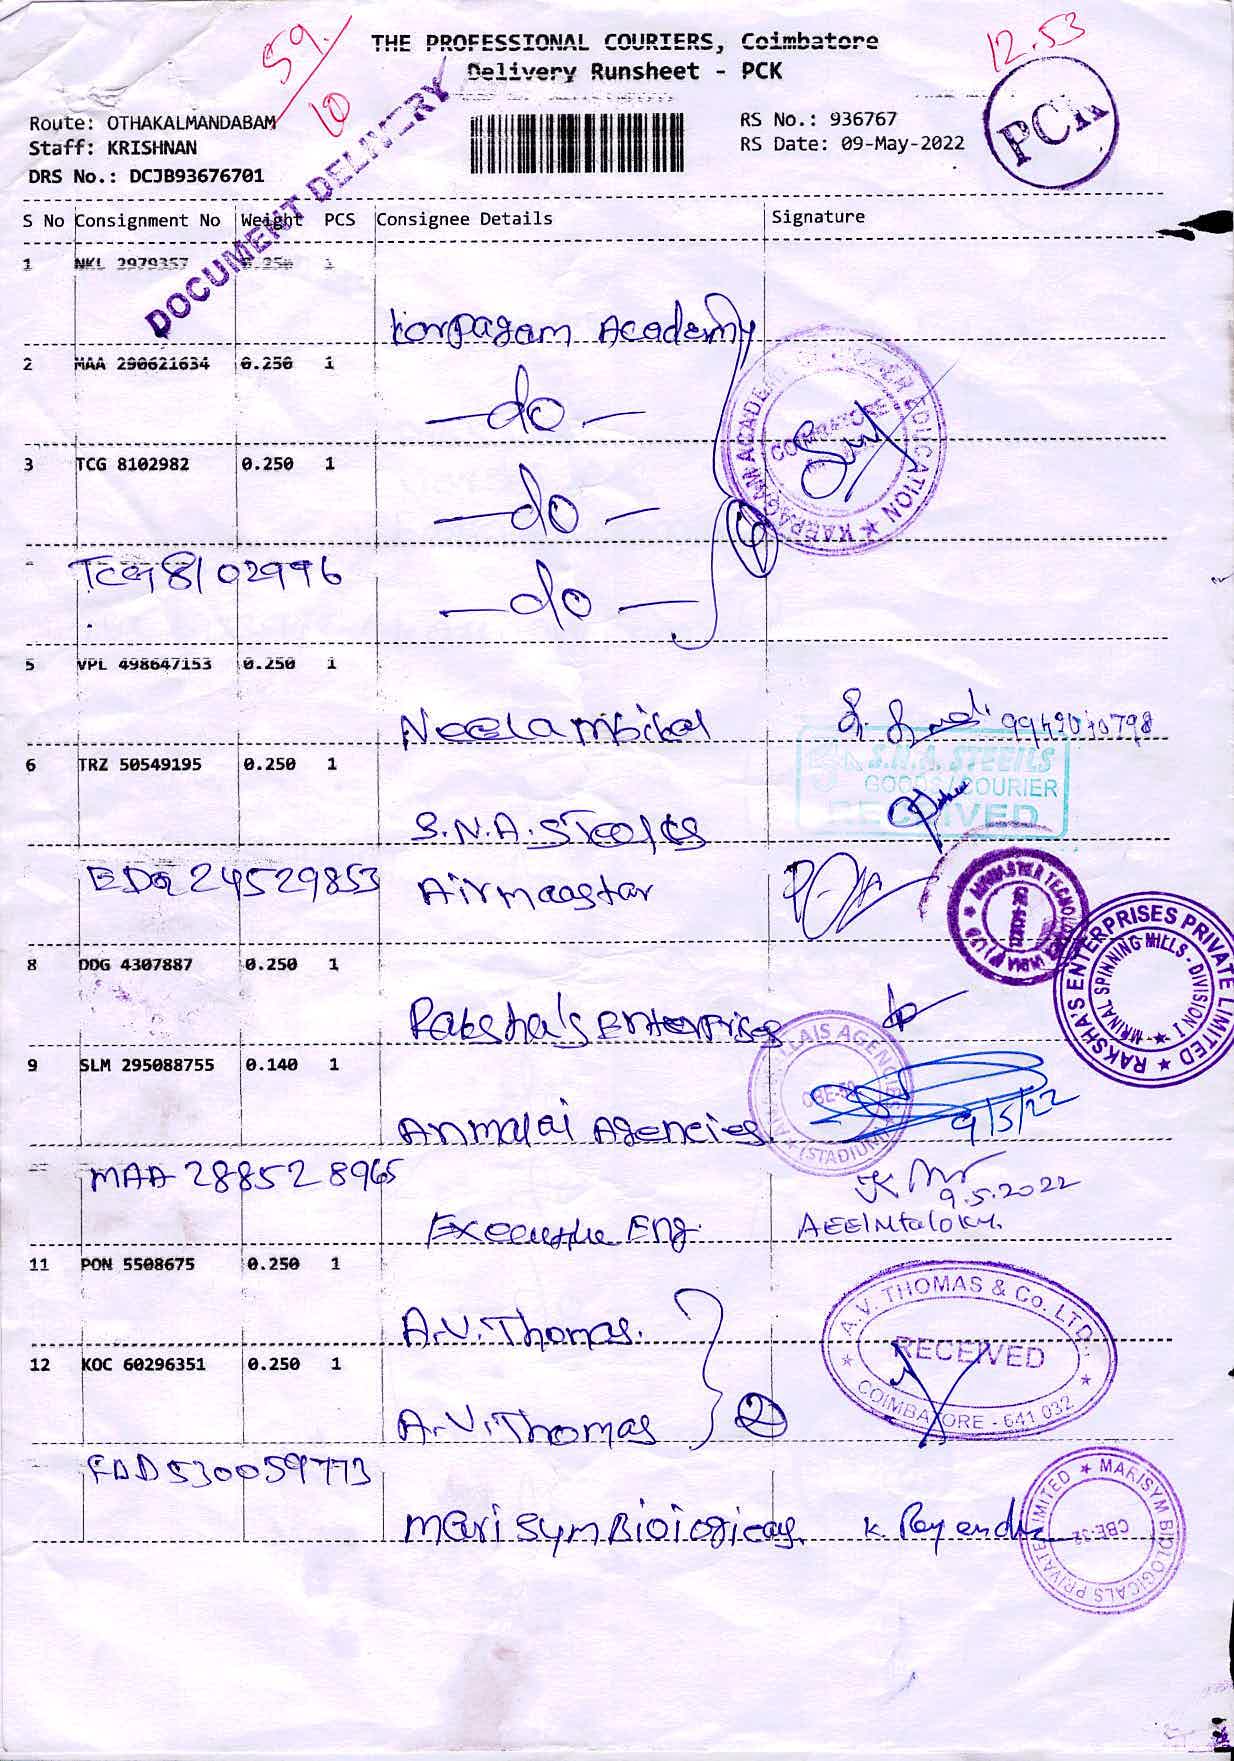 59.
10
12.53
THE PROFESSIONAL COURIERS, Coimbatore
Delivery Runsheet - PCK
PCK
Route: OTHAKALMANDABAM
Staff: KRISHNAN
DRS No.: DCJB93676701
RS No.: 936767
RS Date: 09-May-2022
DOCUMENT DELIVERY
S No Consignment No Weight PCS Consignee Details Signature
1 NKL 2979357 0.250 1
Karpagam Academy
2 MAA 290621634 0.250 1
-do-
KARPAGAM ACADEMY OF HIGHER EDUCATION
COIMBATORE
3 TCG 8102982 0.250 1
-do-
4
TCG 8102996
-do-
5 VPL 498647153 0.250 1
Neelambikai
6 TRZ 50549195 0.250 1
S.N.A. STEELS
GOODS/COURIER
RECEIVED
S.N.A. Steels
EDG 24529853 Airmaastar
8 DDG 4307887 0.250 1
Raksha's Enterprises
RAKSHA'S ENTERPRISES PRIVATE LIMITED
MRINAL SPINNING MILLS - DIVISION I
9 SLM 295088755 0.140 1
Anmalai Agencies
CBE-50
(STADIUM)
9/5/22
MAA 288528965
9.5.2022
Executive Eng.
11 PON 5508675 0.250 1
A.V. Thomas.
A.V. THOMAS & Co. LTD.
RECEIVED
COIMBATORE - 641 032
12 KOC 60296351 0.250 1
A.V. Thomas
2
FAD 530059773
Marisym Biologicals. K. Rajendra
MARISYM BIOLOGICALS PRIVATE LIMITED
CBE-32